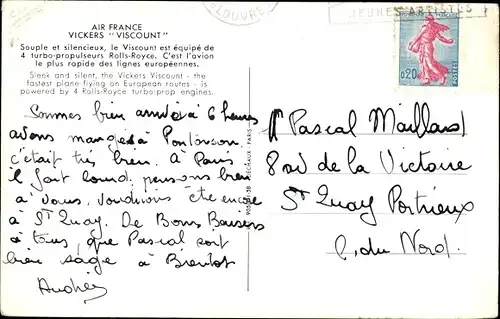 AIR FRANCE
VICKERS "VISCOUNT"
Souple et silencieux, le Viscount est équipé de
4 turbo-propulseurs Rolls-Royce. C'est l'avion
le plus rapide des lignes européennes.
Sleek and silent, the Vickers Viscount - the
fastest plane flying on European routes - is
powered by 4 Rolls-Royce turbo-prop engines.
Sommes bien arrivés à 6 heures
avons mangés à Pontorson
c'était très bien. À Paris
il fait lourd, pensons bien
à vous, voudrions être encore
à St Quay. De Bons Baisers
à tous, que Pascal soit
bien sage à Bientot
PARIS
LOUVRE
JEUNES ARTISTES
0,20
POSTES
Pascal Maillard
8 de la Victoire
St Quay Portrieux
C. du Nord.